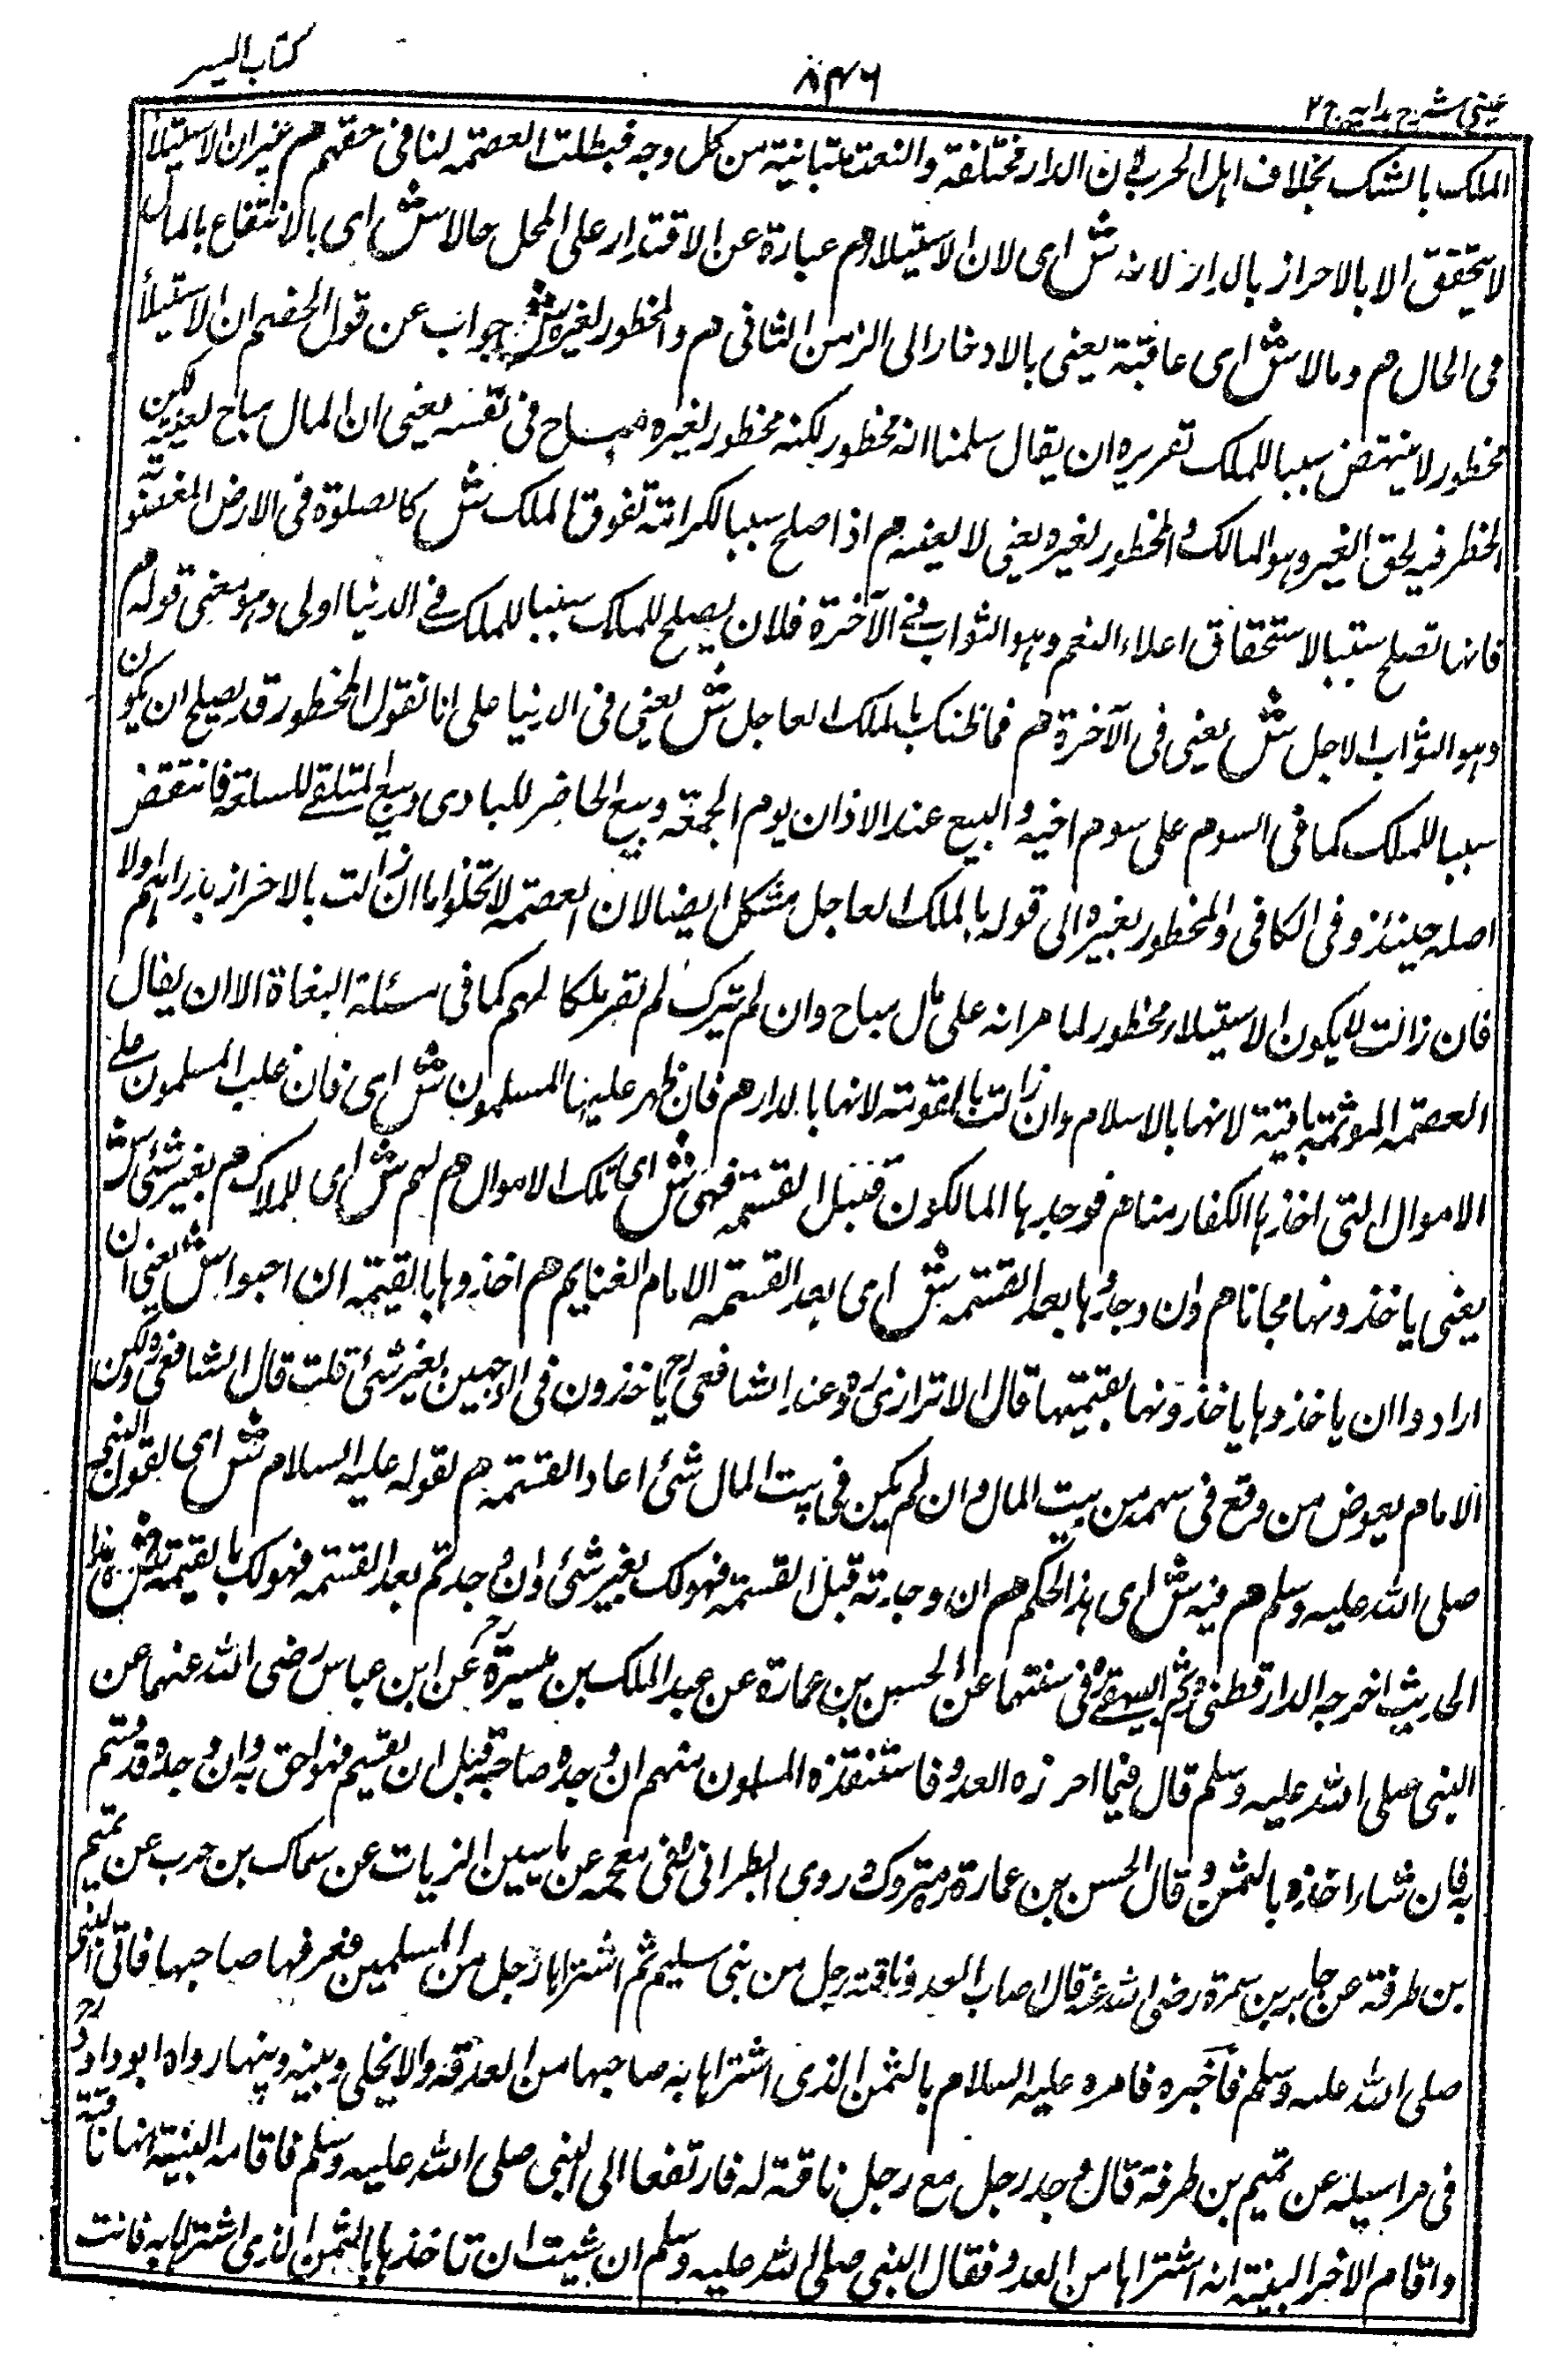 عینی شرح ہدایہ ج ۲
۸۴۶
کتاب السیر
الملک بالشک بخلاف اہل الحرب لان الدار مختلفة والنعمة متباينة من کل وجه فبطلت العصمة لنا فی حقهم هم غیر ان الاستیلاء
لا یتحقق الا بالاحراز بالدار لانه ش ای لان الاستیلاء هم عبارة عن الاقتدار علی المحل حالا ش ای بالانتفاع بالمال
فی الحال هم ومالا ش ای عاقبة یعنی بالادخار الی الزمن الثانی هم والمحظور لغیره ش جواب عن قول الخصم ان الاستیلاء
محظور لا ینتهض سببا للملک تقریره ان یقال سلمنا انه محظور لکنه محظور لغیره مباح فی نفسه یعنی ان المال مباح لعینه لکن
الحظر فیه لحق الغیر وهو المالک والمحظور لغیره یعنی لا لعینه هم اذا صلح سببا لکرامة تفوق الملک ش کالصلوة فی الارض المغصوبة
فانها تصلح سببا لاستحقاق اعلاء النعم وهو الثواب فی الآخرة فلان یصلح للملک سببا للملک فی الدنیا اولی وهو معنی قوله هم
وهو الثواب الاجل ش یعنی فی الآخرة هم فما ظنک بالملک العاجل ش یعنی فی الدنیا علی انا نقول المحظور قد یصلح ان یکون
سببا للملک کما فی السوم علی سوم اخیه والبیع عند الاذان یوم الجمعة وبیع الحاضر للبادی وبیع المتلقی للسلعة فانتقض
اصله حینئذ وفی الکافی والمحظور لغیره الی قوله بالملک العاجل مشکل ایضا لان العصمة لا تخلوا ما ان زالت بالاحراز بدراهم اولا
فان زالت لا یکون الاستیلاء محظور لما مر انه علی مال مباح وان لم تترک لم یقر ملکا لهم کما فی مسئلة البغاة الا ان یقال
العصمة الموثمة باقیة لانها بالاسلام وان زالت بالمقومة لانها بالدار هم فان ظهر علیها المسلمون ش ای فان غلب المسلمون علی
الاموال التی اخذها الکفار منا هم فوجدها المالکون قبل القسمة فهی ش ای تلک الاموال هم لهم ش ای للملاک هم بغیر شئ ش
یعنی یاخذونها مجانا هم وان وجدوها بعد القسمة ش ای بعد القسمة الامام الغنایم هم اخذوها بالقیمة ان احبوا ش یعنی ان
ارادوا ان یاخذوها یاخذونها بقیمتها قال الاترازی رہ وعند الشافعی رح یاخذون فی الوجهین بغیر شئ قلت قال الشافعی رہ ولکن
الامام یعوض من وقع فی سهمه من بیت المال وان لم یکن فی بیت المال شئ اعاد القسمة هم لقوله علیه السلام ش ای لقول النبی
صلی الله علیه وسلم هم فیه ش ای هذا الحکم هم ان وجدته قبل القسمة فهو لک بغیر شئ وان وجدتم بعد القسمة فهو لک بالقیمة ش هذا
الحدیث اخرجه الدارقطنی ثم البیهقی فی سننهما عن الحسن بن عمارة عن عبد الملک بن میسرة رح عن ابن عباس رضی الله عنهما عن
النبی صلی الله علیه وسلم قال فیما احرزه العدو فاستنقذه المسلمون منهم ان وجده صاحبه قبل ان یقسم فهو احق به وان وجده قد قسم
به فان شاء اخذه بالثمن وقال الحسن بن عمارة متروک وروی الطبرانی رہ فی معجمه عن یاسین الزیات عن سماک بن حرب عن تمیم
بن طرفة عن جابر بن سمرة رضی الله عنه قال اصاب العدو ناقة رجل من بنی سلیم ثم اشتراها رجل من المسلمین فعرفها صاحبها فاتی النبی
صلی الله علیه وسلم فاخبره فامره علیه السلام بالثمن الذی اشتراها به صاحبها من العدو والا یخلی وبینه وبینها رواه ابوداود رح
فی مراسیله عن تمیم بن طرفة قال وجد رجل مع رجل ناقة له فارتفعا الی النبی صلی الله علیه وسلم فاقامه البینة انها ناقته
واقام الاخر البینة انه اشتراها من العدو فقال النبی صلی الله علیه وسلم ان شیت ان تاخذها بالثمن الذی اشتراها به فانت